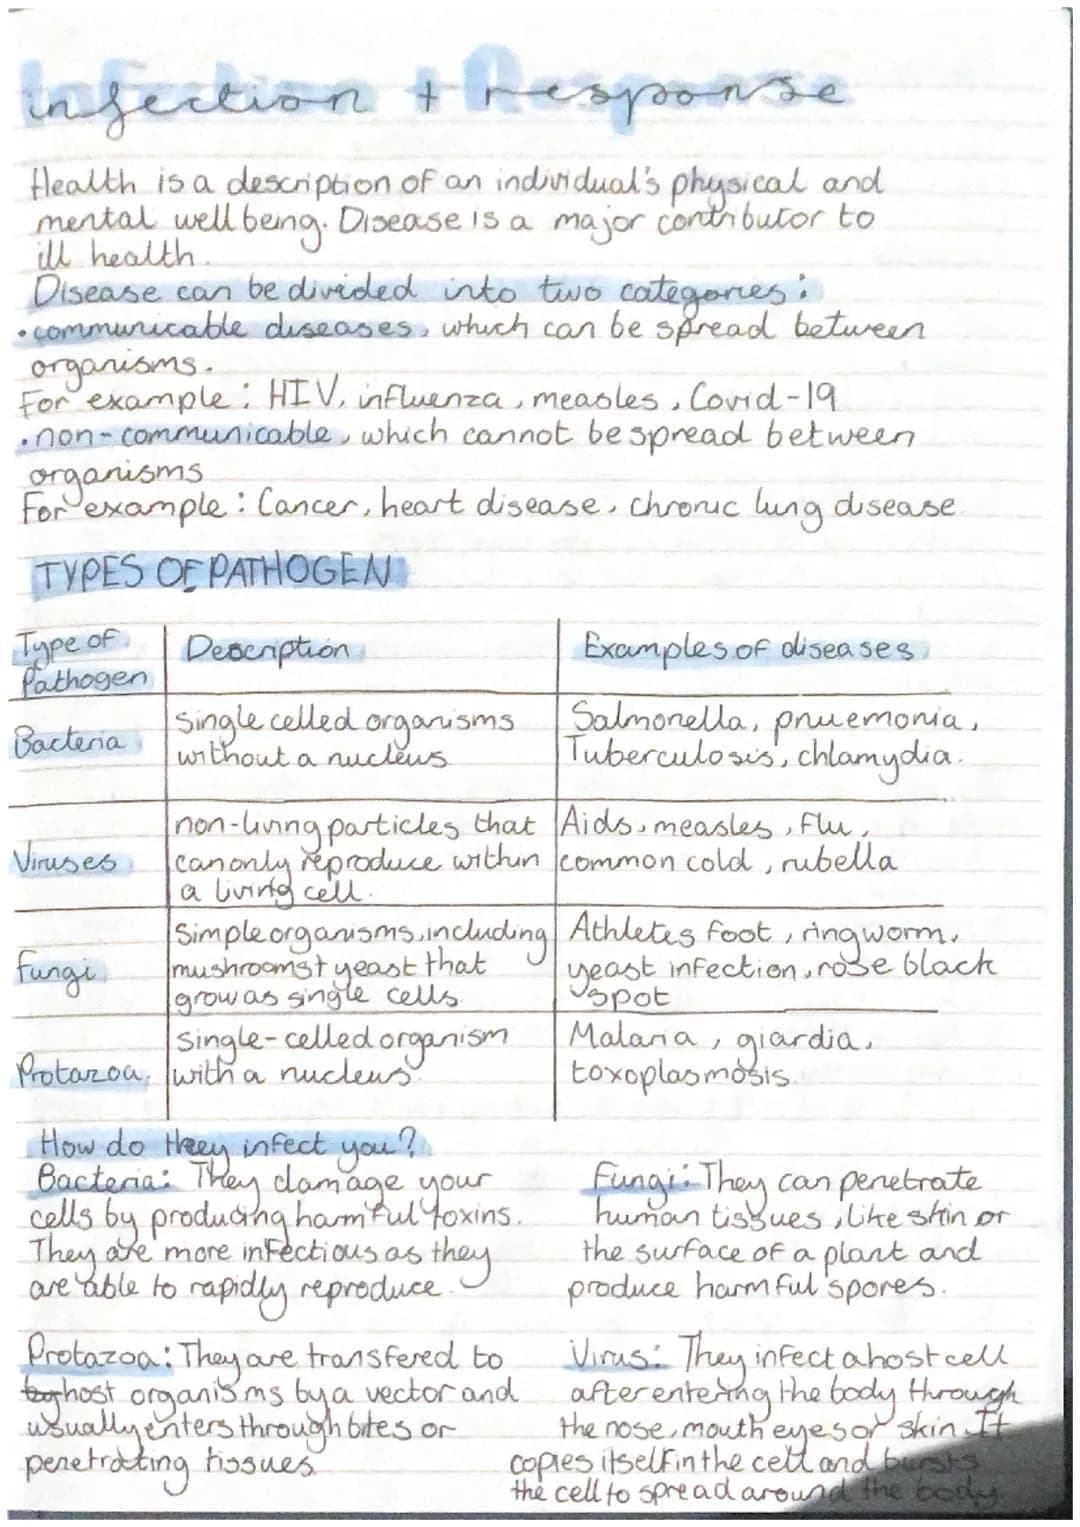 infection + response
Health is a description of an individual's physical and
mental well being. Disease is a major contributor to
ill health.
Disease can be divided into two categories:
• communicable diseases, which can be spread between
organisms.
For example: HIV, influenza, measles, Covid-19
• non-communicable, which cannot be spread between
organisms
For example: Cancer, heart disease, chronic lung disease.
TYPES OF PATHOGEN
Type of Pathogen
Description
Examples of diseases
Bacteria
Single celled organisms
without a nucleus
Salmonella, pnuemonia,
Tuberculosis, chlamydia.
Viruses
non-living particles that
can only reproduce within
a living cell.
Aids, measles, flu,
common cold, rubella
Fungi
Simple organisms, including
mushrooms + yeast that
grow as single cells
Athletes foot, ringworm,
yeast infection, rose black
spot
Protazoa
single-celled organism
with a nucleus
Malaria, giardia,
toxoplasmosis
How do they infect you?
Bacteria: They damage your
cells by producing harmful toxins.
They are more infectious as they
are able to rapidly reproduce.
Fungi: They can penetrate
human tissues, like skin or
the surface of a plant and
produce harmful spores.
Protazoa: They are transfered to
host organisms by a vector and
usually enters through bites or
penetrating tissues
Virus: They infect a host cell
after entering the body through
the nose, mouth eyes or skin. It
copies itself in the cell and bursts
the cell to spread around the body